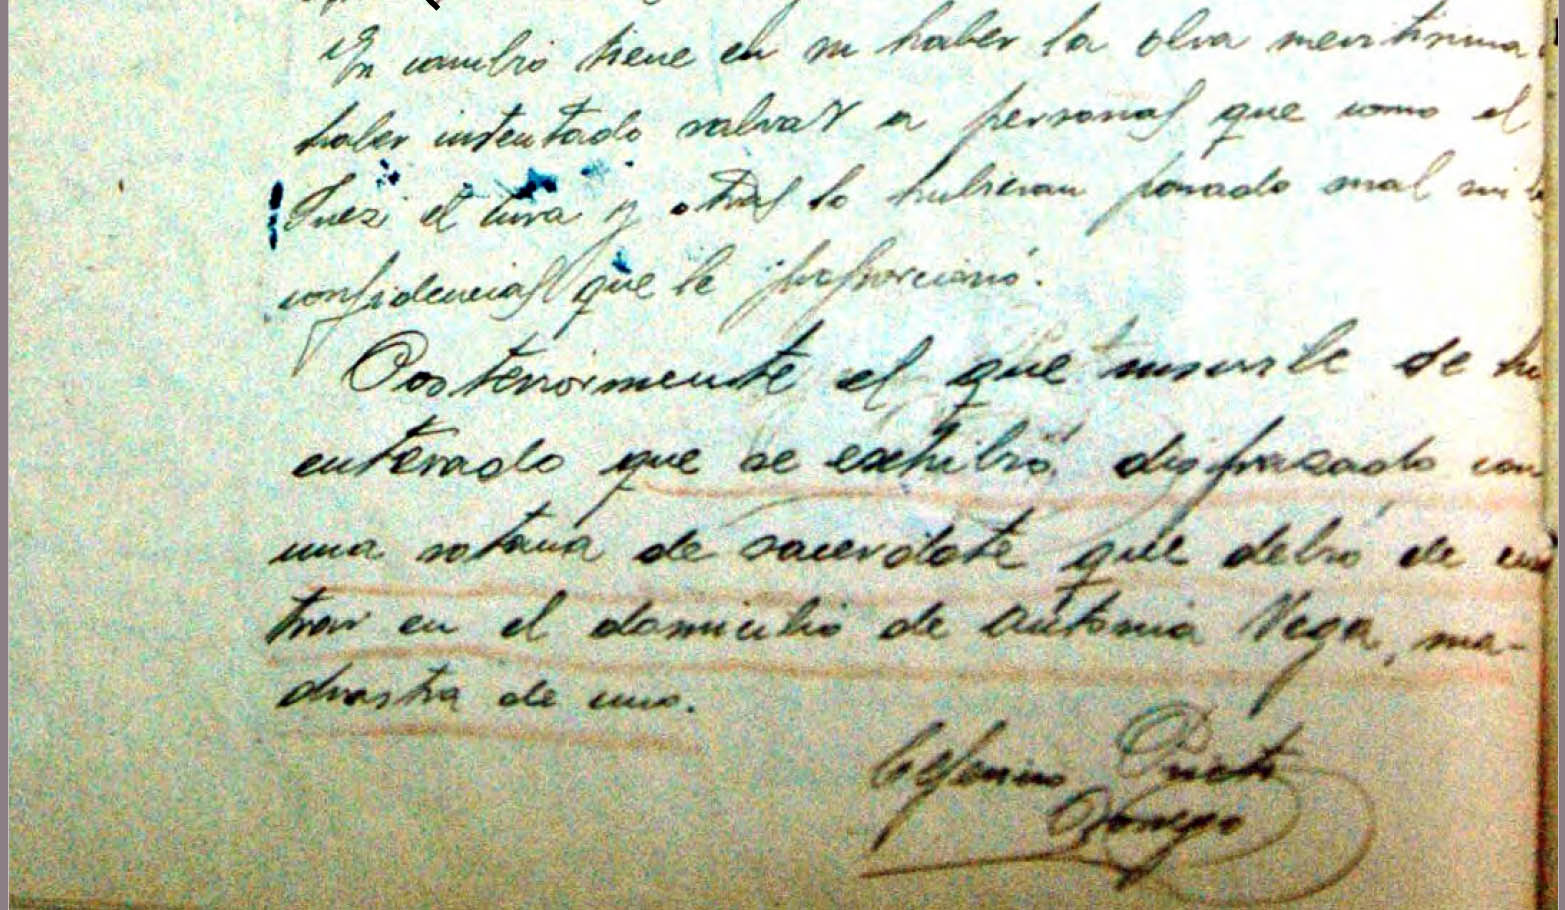 En cambio tiene en su haber la obra meritisima
haber intentado salvar a personas que como el
Juez el cura y otras lo hubieran pasado mal sin
confidencias que le proporcionó.
Posteriormente el que suscribe se
enterado que se exhibió disfrazado con
una sotana de sacerdote que debió de
trar en el domicilio de Antonia Vega, ma-
drastra de uno.
Prieto